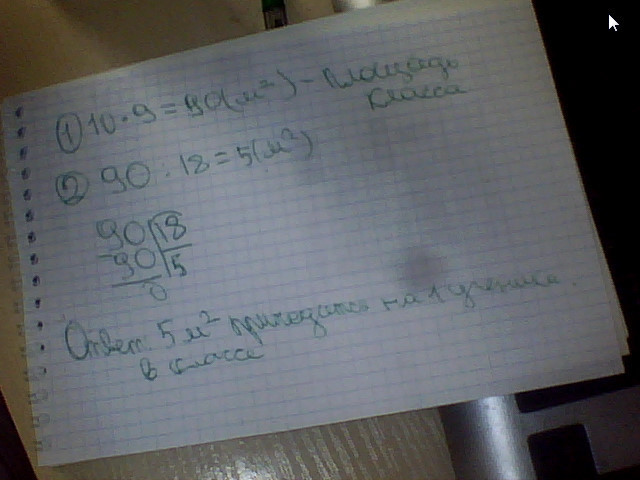 ① 10 · 9 = 90 (м²) - площадь
класса
② 90 : 18 = 5 (м²)
90 | 18
- 90 | 5
0
Ответ: 5 м² приходится на 1 ученика.
в классе